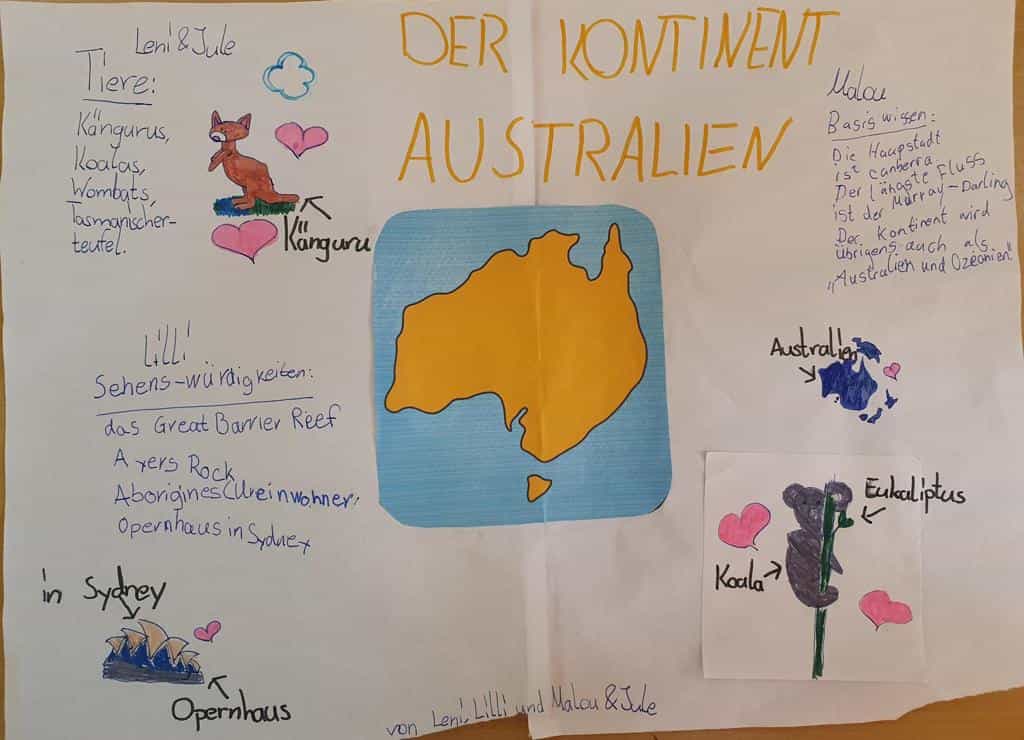 DER KONTINENT
AUSTRALIEN
Leni & Jule
Tiere:
Kängurus,
Koalas,
Wombats,
Tasmanischer-
teufel.
Känguru
Malou
Basiswissen:
Die Haupstadt
ist canberra.
Der längste Fluss
ist der Murray-Darling
Der Kontinent wird
übrigens auch als
„Australien und Ozeanien"
Australien
Lilli
Sehens-würdigkeiten:
das Great Barrier Reef
Ayers Rock
Aborigines(Ureinwohner,
Opernhaus in Sydney
in Sydney
Opernhaus
Eukaliptus
Koala
von Leni, Lilli und Malou & Jule